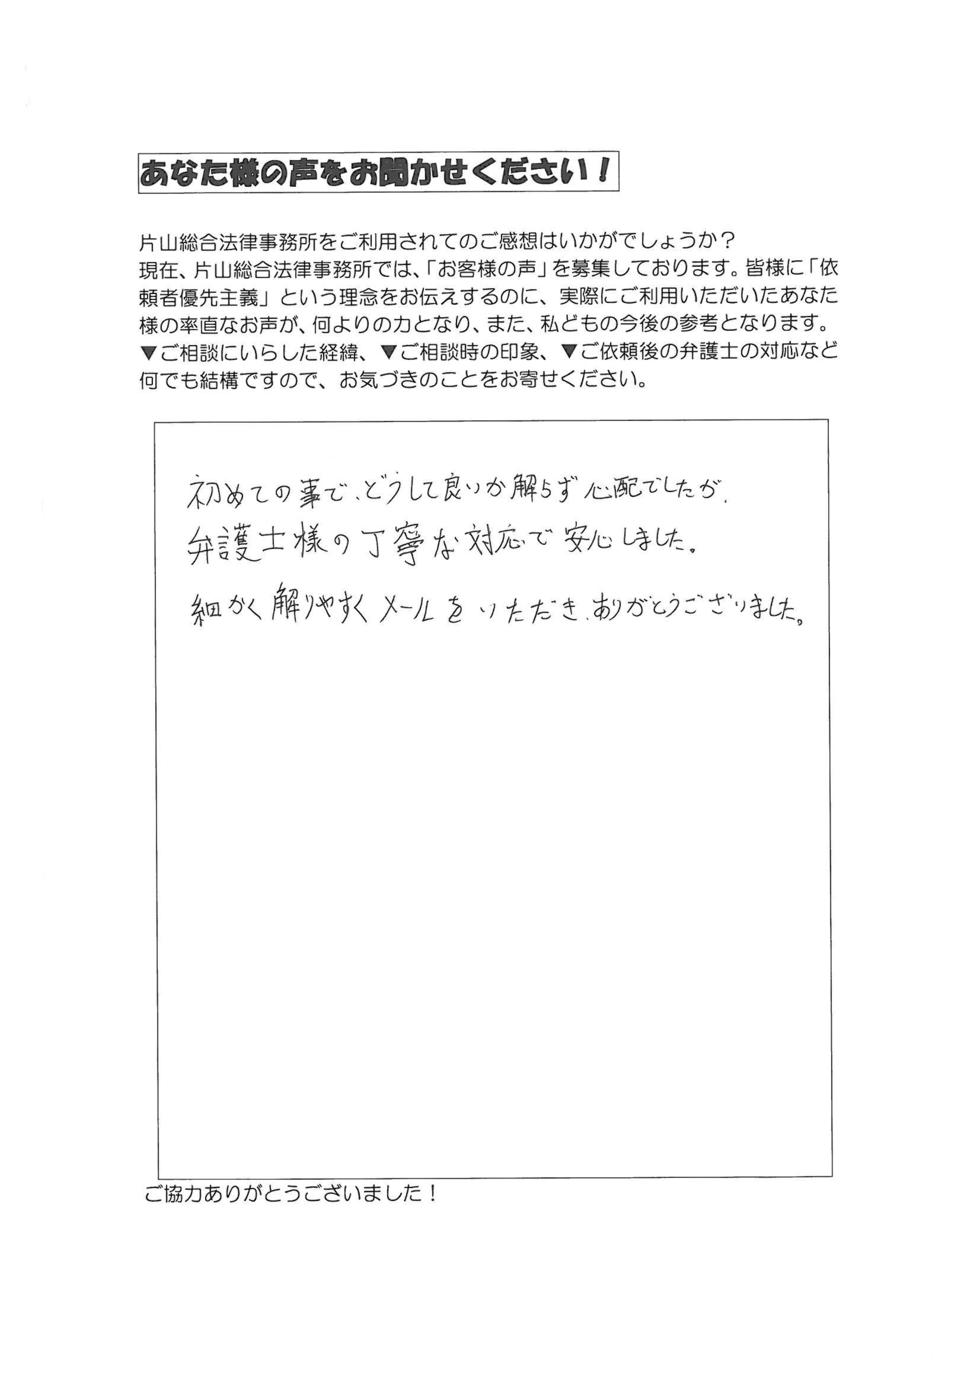 あなた様の声をお聞かせください！
片山総合法律事務所をご利用されてのご感想はいかがでしょうか？
現在、片山総合法律事務所では、「お客様の声」を募集しております。皆様に「依
頼者優先主義」という理念をお伝えするのに、実際にご利用いただいたあなた
様の率直なお声が、何よりの力となり、また、私どもの今後の参考となります。
▼ご相談にいらした経緯、▼ご相談時の印象、▼ご依頼後の弁護士の対応など
何でも結構ですので、お気づきのことをお寄せください。
初めての事で、どうして良いか解らず心配でしたが、
弁護士様の丁寧な対応で安心しました。
細かく解りやすくメールをいただき、ありがとうございました。
ご協力ありがとうございました！